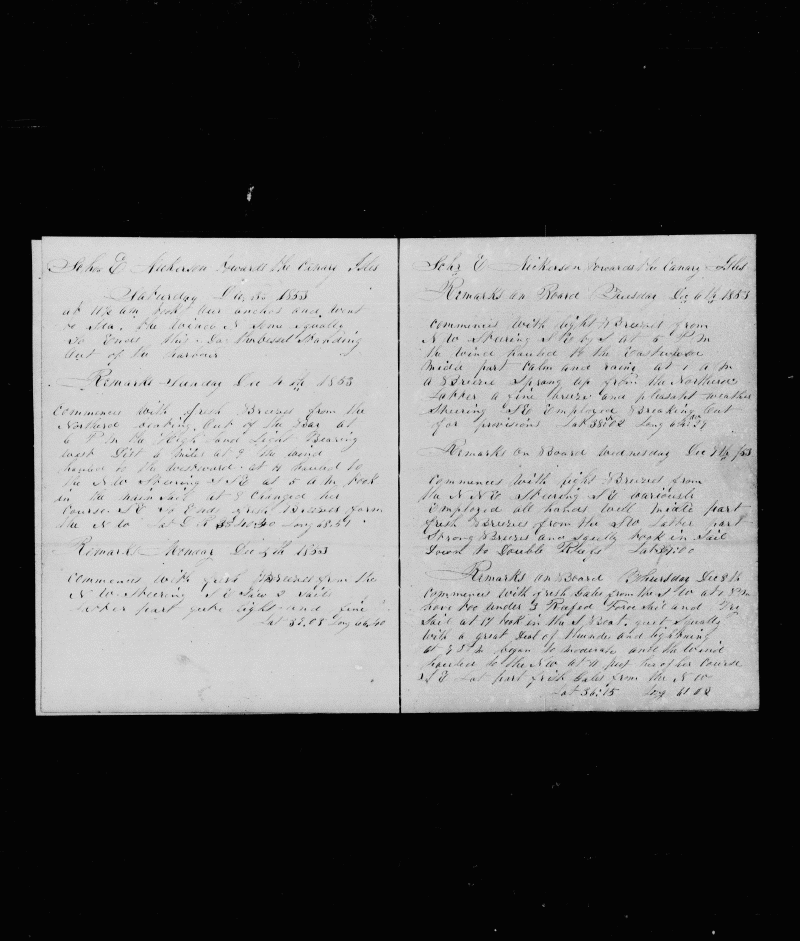 Schr E Nickerson towards the Canary Isles
Saturday Dec 1853
at 11 Am took our anchor and went
to Sea. the wind N some squally
So Ends this Day Embessel Standing
Out of the harbour
Remarks Sunday Dec 4th 1853
Commences with fresh Breezes from the
Northerd beating Out of the Bay at
6 P M the High land Light Bearing
West Dist 6 Miles at 9 the wind
hauled to the Westward at 11 hauled to
the N W Steering S S E at 5 a m took
in the main Sail at 8 Changed her
Course S E So Ends fresh Breezes form
the N W Lat D R Long 68.51
Remarks Monday Dec 5th 1853
Commences with fresh Breezes from the
N W Steering S E Saw 2 Sails
Latter part quite light and fine
Lat 39.08 Long 66.40
Schr E Nickerson towards the Canary Isles
Remarks on Board Tuesday Dec 6th 1853
Commences with light Breezes from
N W Stearing S E by S at 5 P M
the wind hauled to the Eastward
Midle part Calm and raing at 1 A M
a Breeze Sprang up from the Northerd
Latter a fine breeze and pleasant weather
Steering S E Employed Breaking Out
for provisions Lat 38.02 Long
Remarks on Board Wednesday Dec 7th 1853
Commences with light Breezes from
the N N E Steering S E variously
Employed all hands well midle part
fresh Breezes from the S W Latter part
Strong Breezes and Squally took in Sail
Down to Double Reefs Lat 37.00
Remarks on Board Thursday Dec 8th
Commences with fresh Gales from the S W at 1 P M
have too under 3 Reafed Fore Sail and Try
Sail at 12 took in the S Boat. quit squally
with a great Deal of thunder and lightning
at began to moderate and the Wind
hauled to the N W at 11 put her of her Course
S E Lat part fresh Gales from the N W
Lat 36.15 Long 61.08